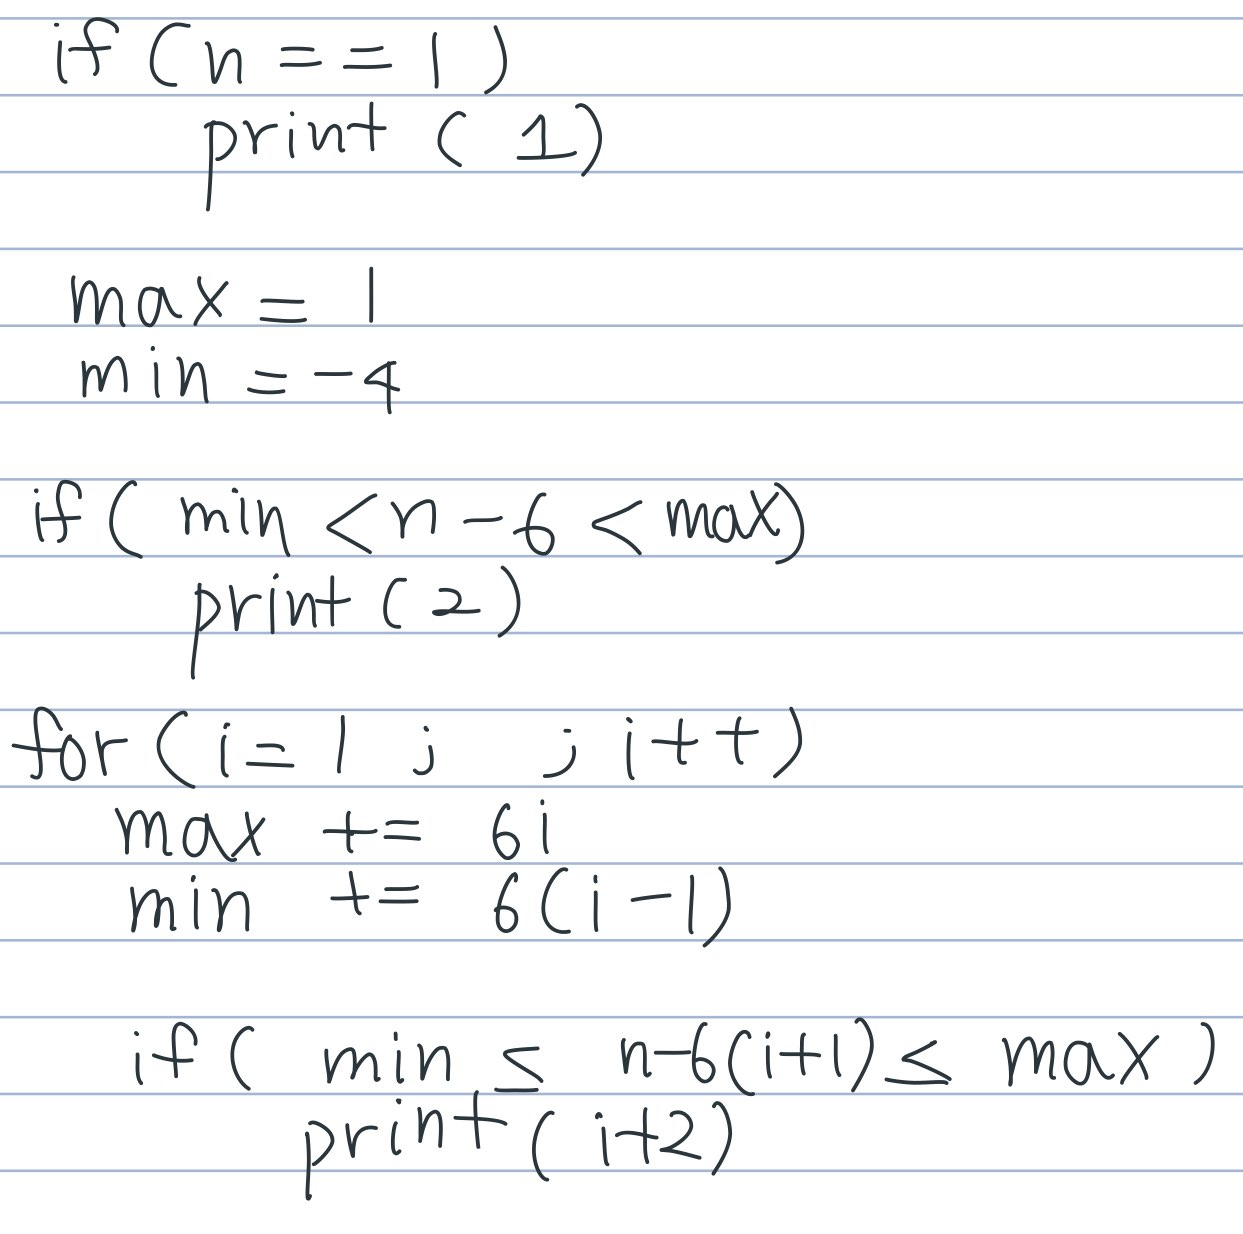 if (n == 1)
print (1)
max = 1
min = -4
if ( min < n - 6 < max)
print (2)
for (i = 1 ; ; i++)
max += 6i
min += 6(i-1)
if ( min ≤ n-6(i+1) ≤ max )
print ( i+2)